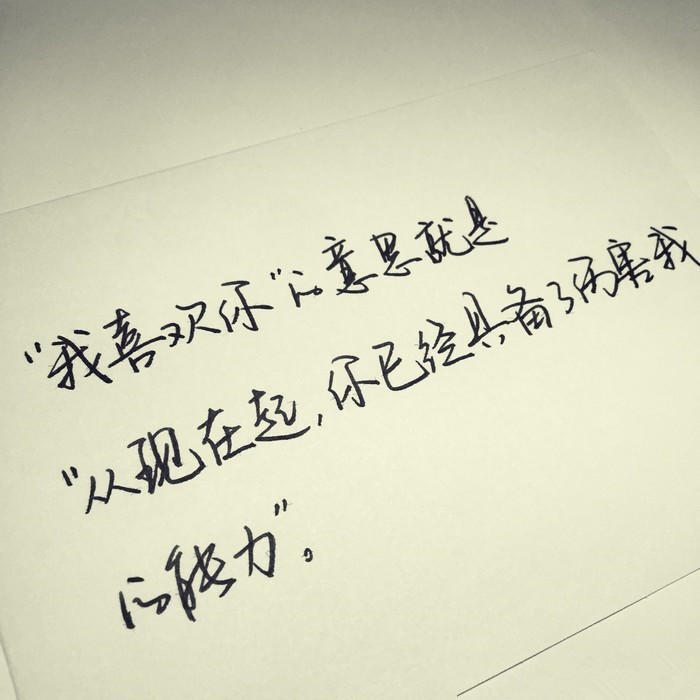 “我喜欢你”的意思就是
“从现在起,你已经具备了伤害我
的能力”。